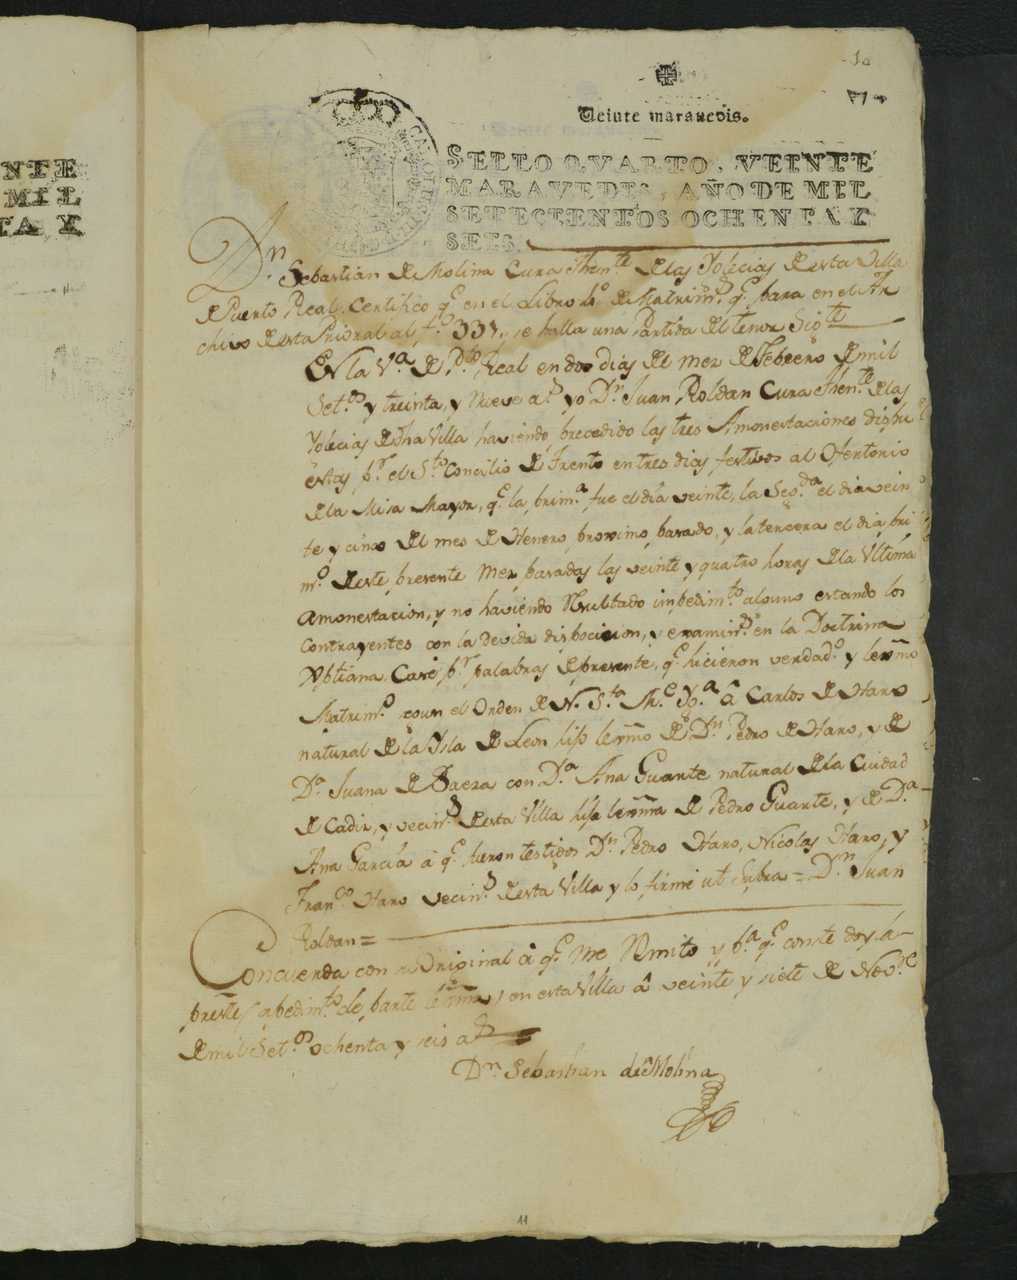 10
Veinte maravedis.
SELLO QVARTO, VEINTE
MARAVEDIS, AÑO DE MIL
SETECIENTOS OCHENTA Y
SEIS.
NTE
MIL
TA Y
Dn Sebastian de Molina Cura Thente de las Yglecias de esta Villa
de Puerto Real: Certifico qe en el Libro 4o de Matrimos qe para en el Ar
chivo de esta Prioral al fo 331, se halla una Partida del tenor Sigte
En la Va de Pto Real en dos dias del mez de Febrero de mil
Setos y treinta, y Nueve as yo Dn Juan Roldan Cura Thente de las
Yglecias de dha Villa haviendo precedido las tres Amonestaciones dispu
estas pr el Sto Concilio de Trento en tres dias festivos al Ofertorio
de la Misa Mayor, qe la prima fue el dia veinte, la Segda el dia vein
te y cinco del mes de Henero proximo pasado, y la tercera el dia pri
mo de este presente Mez pasadas las veinte y quatro horas de la Ultima
amonestacion, y no haviendo Resultado impedimto alguno estando los
Contrayentes con la devida disposicion, y examinds en la Doctrina
Xptiana, Casé pr palabras de presente, qe hicieron verdado y lexmo
Matrimo segun el Orden de N. Sta Me Yga â Carlos de Haro
natural de la Ysla de Leon hijo lexmo de Dn Pedro de Haro, y de
Da Juana de Baeza con Da Ana Guante natural de la Ciudad
de Cadiz, y vecins de esta Villa hija lexma de Pedro Guante, y de Da
Ana Garcia â qe fueron testigos Dn Pedro Haro, Nicolas Haro, y
Franco Haro vecins de esta Villa y lo firmé ut Supra = Dn Juan
Roldan =
Concuerda con su Original â qe me Remito y pa qe conste doy la
preste a pedimto de parte lexma, en esta Villa â veinte y siete de Nove
de mil Setos ochenta y seis as
Dn Sebastian de Molina
11